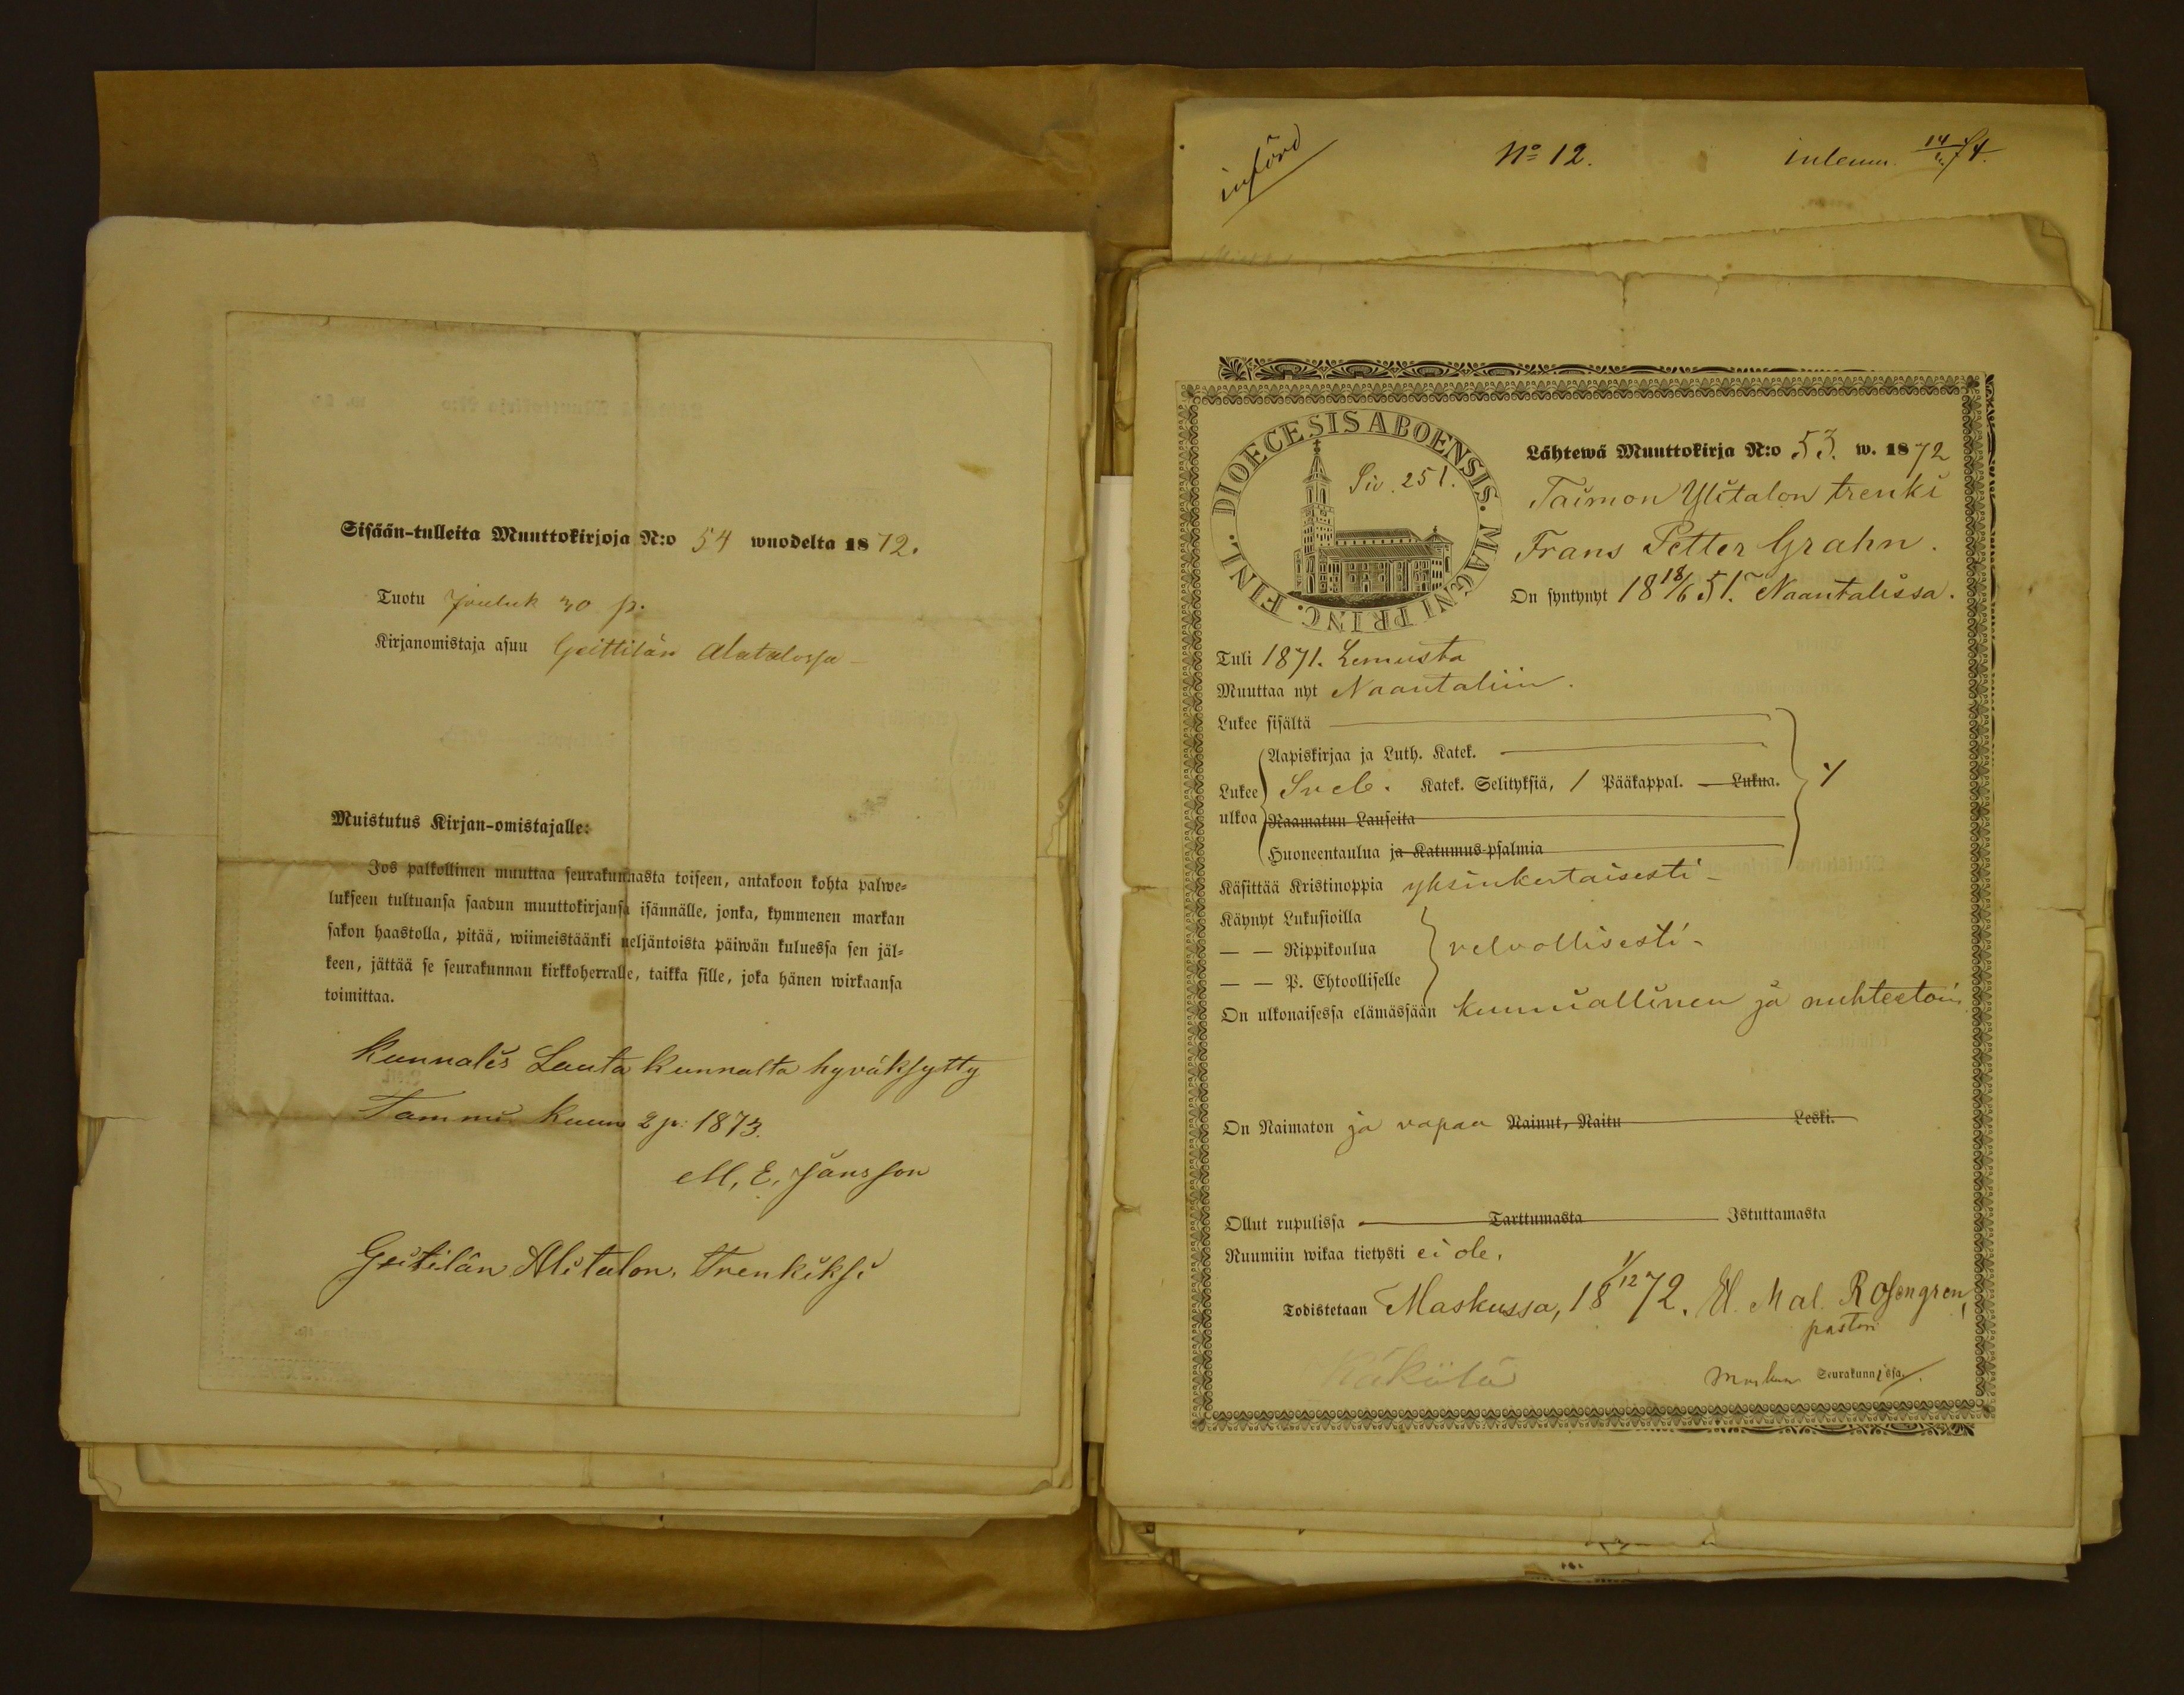 Sisään-tulleita Muuttokirjoja N:o 54 wuodelta 1872.
Tuotu Jouluk 30 p.
Kirjanomistaja asuu Geittilän Alatalossa
Muistutus Kirjan-omistajalle:
Jos palkollinen muuttaa seurakunnasta toiseen, antakoon kohta palwe-
lukseen tultuansa saadun muuttokirjansa isännälle, jonka, kymmenen markan
sakon haastolla, pitää, wiimeistäänki neljäntoista päiwän kuluessa sen jäl-
keen, jättää se seurakunnan kirkkoherralle, taikka sille, joka hänen wirkaansa
toimittaa.
Kunnalis Lauta kunnalta hyväksytty
Tammi kuun 2 p: 1873.
M. E. Jansson
Geitilän Alitalon. Trenkiksi
införd
No 12.
inlemn. 74.
DIOECESIS ABOENSIS. MAGNI PRINC. FINL.
Siv. 251.
Lähtewä Muuttokirja N:o 53. w. 1872
Taimon Ylitalon trenki
Frans Petter Grahn.
On syntynyt 18 18/6 51. Naantalissa.
Tuli 1871. Lemusta
Muuttaa nyt Naantaliin.
Lukee sisältä
Aapiskirjaa ja Luth. Katek.
Lukee Sveb. Katek. Selityksiä, 1 Pääkappal. Lukua.
ulkoa Raamatun Lauseita
Huoneentaulua ja Katumus-psalmia
Käsittää Kristinoppia yksinkertaisesti
Käynyt Lukusioilla
— — Rippikoulua velvollisesti
— — P. Ehtoolliselle
On ulkonaisessa elämässään kunniallinen ja nuhteetoin
On Naimaton ja vapaa Nainut, Naitu Leski.
Ollut rupulissa Tarttumasta Istuttamasta
Ruumiin wikaa tietysti ei ole.
Todistetaan Maskussa, 18 1/12 72. Mal. Rosengren,
pastori
Maskun Seurakunnissa.